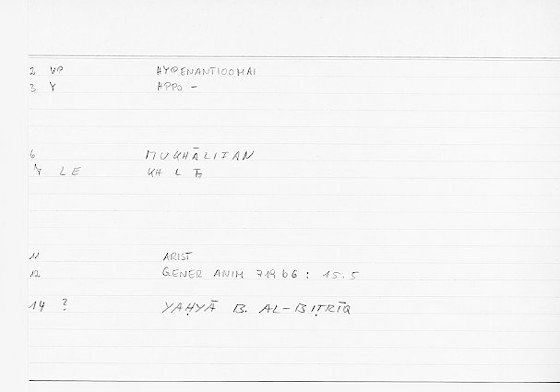 2 VP HYPENANTIOOMAI
3 Y APPO -
6 MUKHĀLIṬAN
LE KH L Ṭ
11 ARIST
12 GENER ANIM 719b6 : 15.5
14 ? YAḤYĀ B. AL-BIṬRĪQ